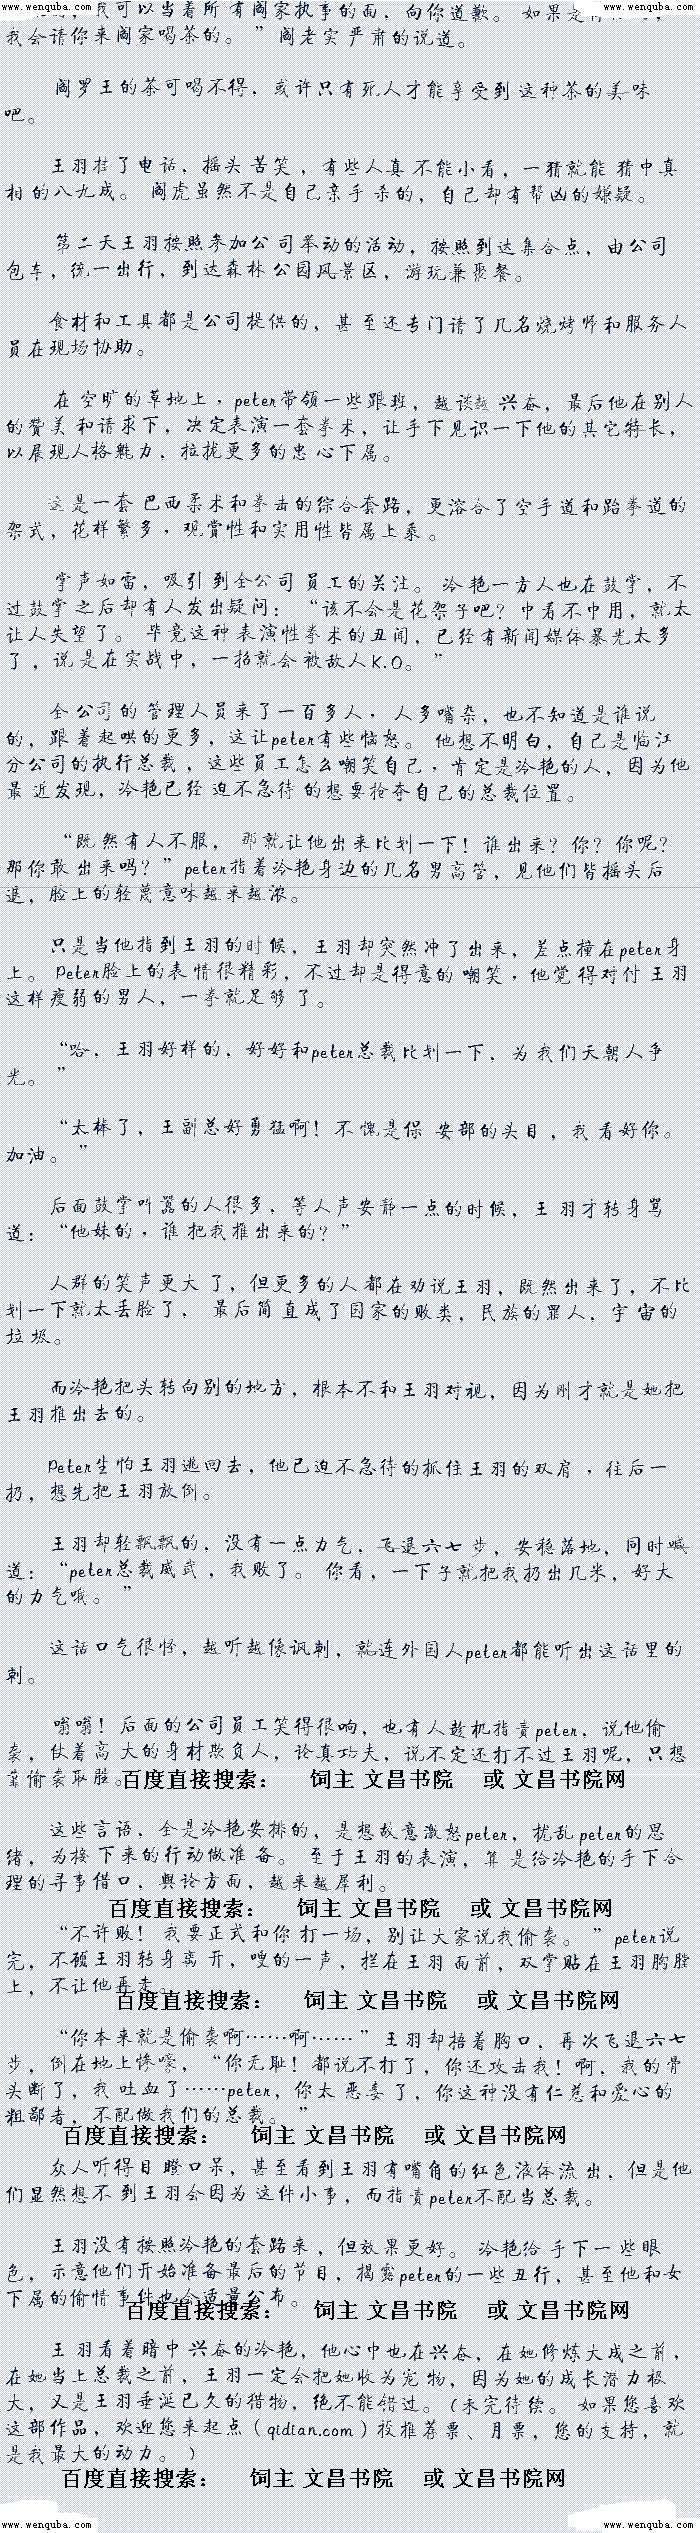 www.wenquba.com www.wenquba.com
我可以当着所有阎家执事的面，向你道歉。如果是
我会请你来阎家喝茶的。”阎老实严肃的说道。
阎罗王的茶可喝不得，或许只有死人才能享受到这种茶的美味
吧。
王羽挂了电话，摇头苦笑，有些人真不能小看，一猜就能猜中真
相的八九成。阎虎虽然不是自己亲手杀的，自己却有帮凶的嫌疑。
第二天王羽按照参加公司举动的活动，按照到达集合点，由公司
包车，统一出行，到达森林公园风景区，游玩兼聚餐。
食材和工具都是公司提供的，甚至还专门请了几名烧烤师和服务人
员在现场协助。
在空旷的草地上，peter带领一些跟班，越谈越兴奋，最后他在别人
的赞美和请求下，决定表演一套拳术，让手下见识一下他的其它特长，
以展现人格魅力，拉拢更多的忠心下属。
这是一套巴西柔术和拳击的综合套路，更溶合了空手道和跆拳道的
架式，花样繁多，观赏性和实用性皆属上乘。
掌声如雷，吸引到全公司员工的关注。冷艳一方人也在鼓掌，不
过鼓掌之后却有人发出疑问：“该不会是花架子吧？中看不中用，就太
让人失望了。毕竟这种表演性拳术的丑闻，已经有新闻媒体暴光太多
了，说是在实战中，一招就会被敌人K.O。”
全公司的管理人员来了一百多人，人多嘴杂，也不知道是谁说
的，跟着起哄的更多，这让peter有些恼怒。他想不明白，自己是临江
分公司的执行总裁，这些员工怎么嘲笑自己，肯定是冷艳的人，因为他
最近发现，冷艳已经迫不急待的想要抢夺自己的总裁位置。
“既然有人不服，那就让他出来比划一下！谁出来？你？你呢？
那你敢出来吗？”peter指着冷艳身边的几名男高管，见他们皆摇头后
退，脸上的轻蔑意味越来越浓。
只是当他指到王羽的时候，王羽却突然冲了出来，差点撞在peter身
上。Peter脸上的表情很精彩，不过却是得意的嘲笑，他觉得对付王羽
这样瘦弱的男人，一拳就足够了。
“哈，王羽好样的，好好和peter总裁比划一下，为我们天朝人争
光。”
“太棒了，王副总好勇猛啊！不愧是保安部的头目，我看好你。
加油。”
后面鼓掌叫嚣的人很多，等人声安静一点的时候，王羽才转身骂
道：“他妹的，谁把我推出来的？”
人群的笑声更大了，但更多的人都在劝说王羽，既然出来了，不比
划一下就太丢脸了，最后简直成了国家的败类，民族的罪人，宇宙的
垃圾。
而冷艳把头转向别的地方，根本不和王羽对视，因为刚才就是她把
王羽推出去的。
Peter生怕王羽逃回去，他已迫不急待的抓住王羽的双肩，往后一
扔，想先把王羽放倒。
王羽却轻飘飘的，没有一点力气，飞退六七步，安稳落地，同时喊
道：“peter总裁威武，我败了。你看，一下子就把我扔出几米，好大
的力气哦。”
这话口气很怪，越听越像讽刺，就连外国人peter都能听出这话里的
刺。
嗡嗡！后面的公司员工笑得很响，也有人趁机指责peter，说他偷
袭，仗着高大的身材欺负人，论真功夫，说不定还打不过王羽呢，只想
靠偷袭取胜。
百度直接搜索： 饲主 文昌书院 或 文昌书院网
这些言语，全是冷艳安排的，是想故意激怒peter，扰乱peter的思
绪，为接下来的行动做准备。至于王羽的表演，算是给冷艳的手下合
理的寻事借口，舆论方面，越来越犀利。
百度直接搜索： 饲主 文昌书院 或 文昌书院网
“不许败！我要正式和你打一场，别让大家说我偷袭。”peter说
完，不顾王羽转身离开，嗖的一声，拦在王羽面前，双掌贴在王羽胸膛
上，不让他再走。
百度直接搜索： 饲主 文昌书院 或 文昌书院网
“你本来就是偷袭啊……啊……”王羽却捂着胸口，再次飞退六七
步，倒在地上惨嚎，“你无耻！都说不打了，你还攻击我！啊，我的骨
头断了，我吐血了……peter，你太恶毒了，你这种没有仁慈和爱心的
粗鄙者，不配做我们的总裁。”
百度直接搜索： 饲主 文昌书院 或 文昌书院网
众人听得目瞪口呆，甚至看到王羽有嘴角的红色液体流出，但是他
们显然想不到王羽会因为这件小事，而指责peter不配当总裁。
王羽没有按照冷艳的套路来，但效果更好。冷艳给手下一些眼
色，示意他们开始准备最后的节目，揭露peter的一些丑行，甚至他和女
下属的偷情事件也会适量公布。
百度直接搜索： 饲主 文昌书院 或 文昌书院网
王羽看着暗中兴奋的冷艳，他心中也在兴奋，在她修炼大成之前，
在她当上总裁之前，王羽一定会把她收为宠物，因为她的成长潜力极
大，又是王羽垂涎已久的猎物，绝不能错过。（未完待续。如果您喜欢
这部作品，欢迎您来起点（qidian.com）投推荐票、月票，您的支持，就
是我最大的动力。）
百度直接搜索： 饲主 文昌书院 或 文昌书院网
www.wenquba.com www.wenquba.com